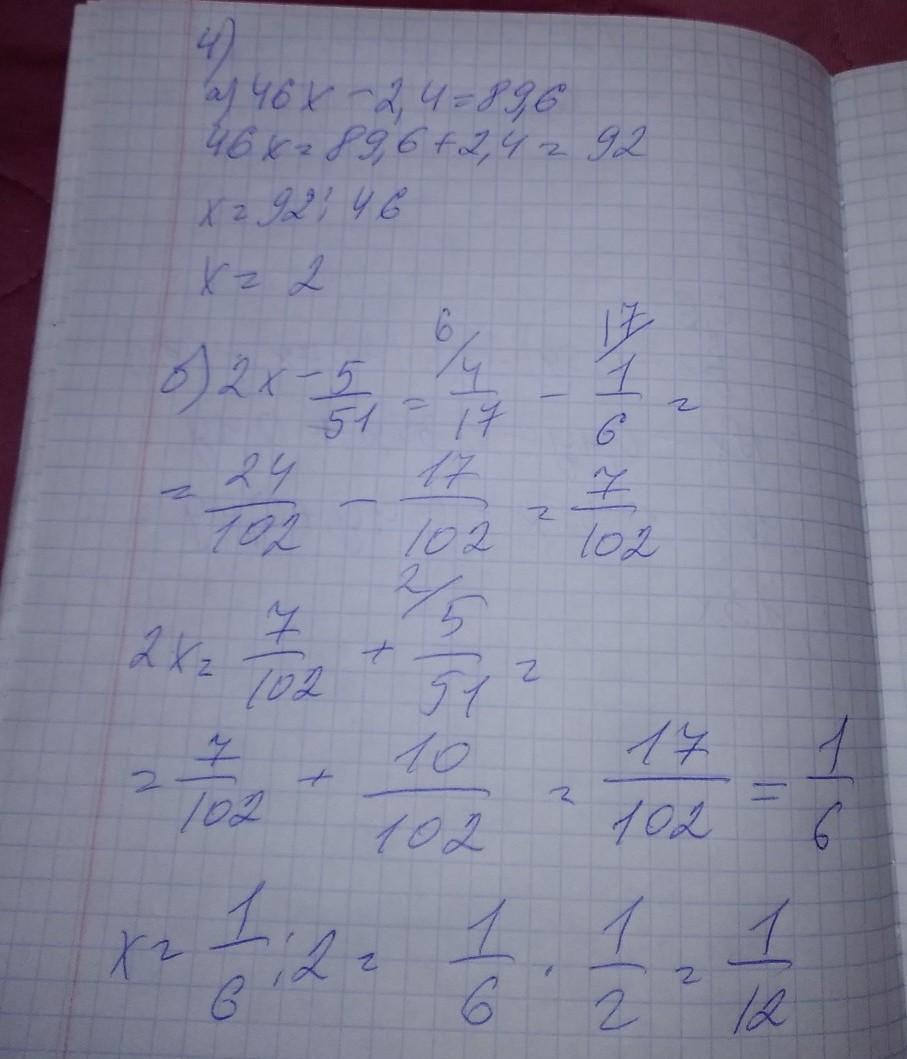 4)
а) 46x - 2,4 = 89,6
46x = 89,6 + 2,4 = 92
x = 92 : 46
x = 2
б) 2x - 5/51 = 6/ 4/17 - 17/ 1/6 =
= 24/102 - 17/102 = 7/102
2x = 7/102 + 2/ 5/51 =
= 7/102 + 10/102 = 17/102 = 1/6
x = 1/6 : 2 = 1/6 · 1/2 = 1/12